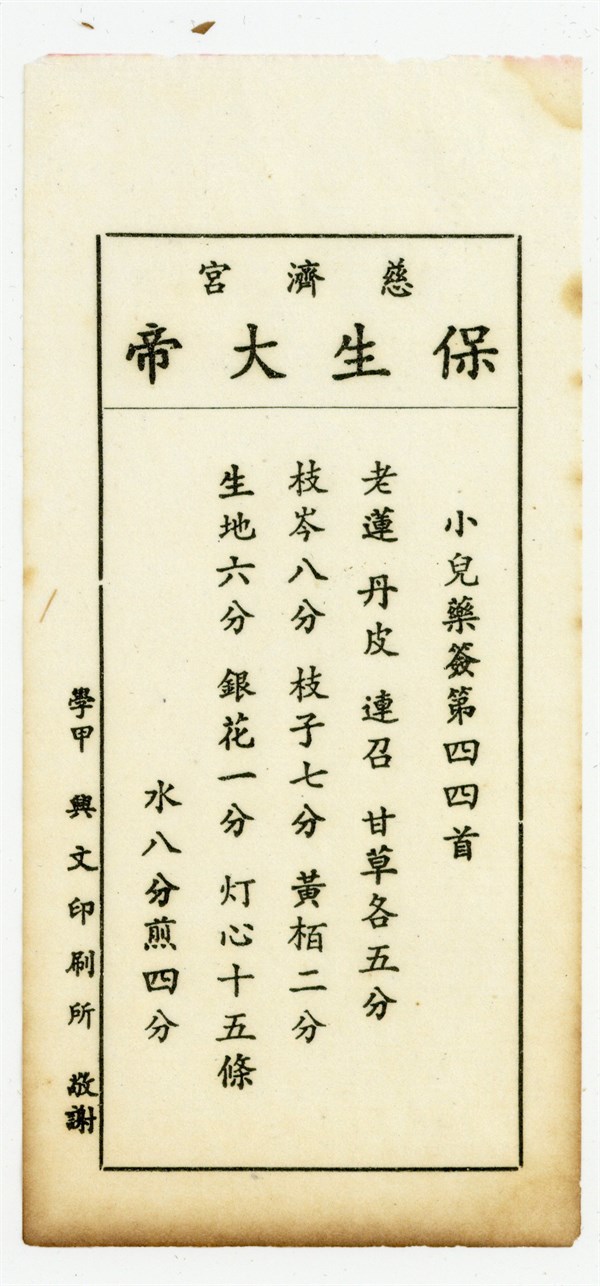 慈濟宮
保生大帝
小兒藥簽第四四首
老蓮 丹皮 連召 甘草各五分
枝岑八分 枝子七分 黃栢二分
生地六分 銀花一分 灯心十五條
水八分煎四分
學甲 興文印刷所 敬謝